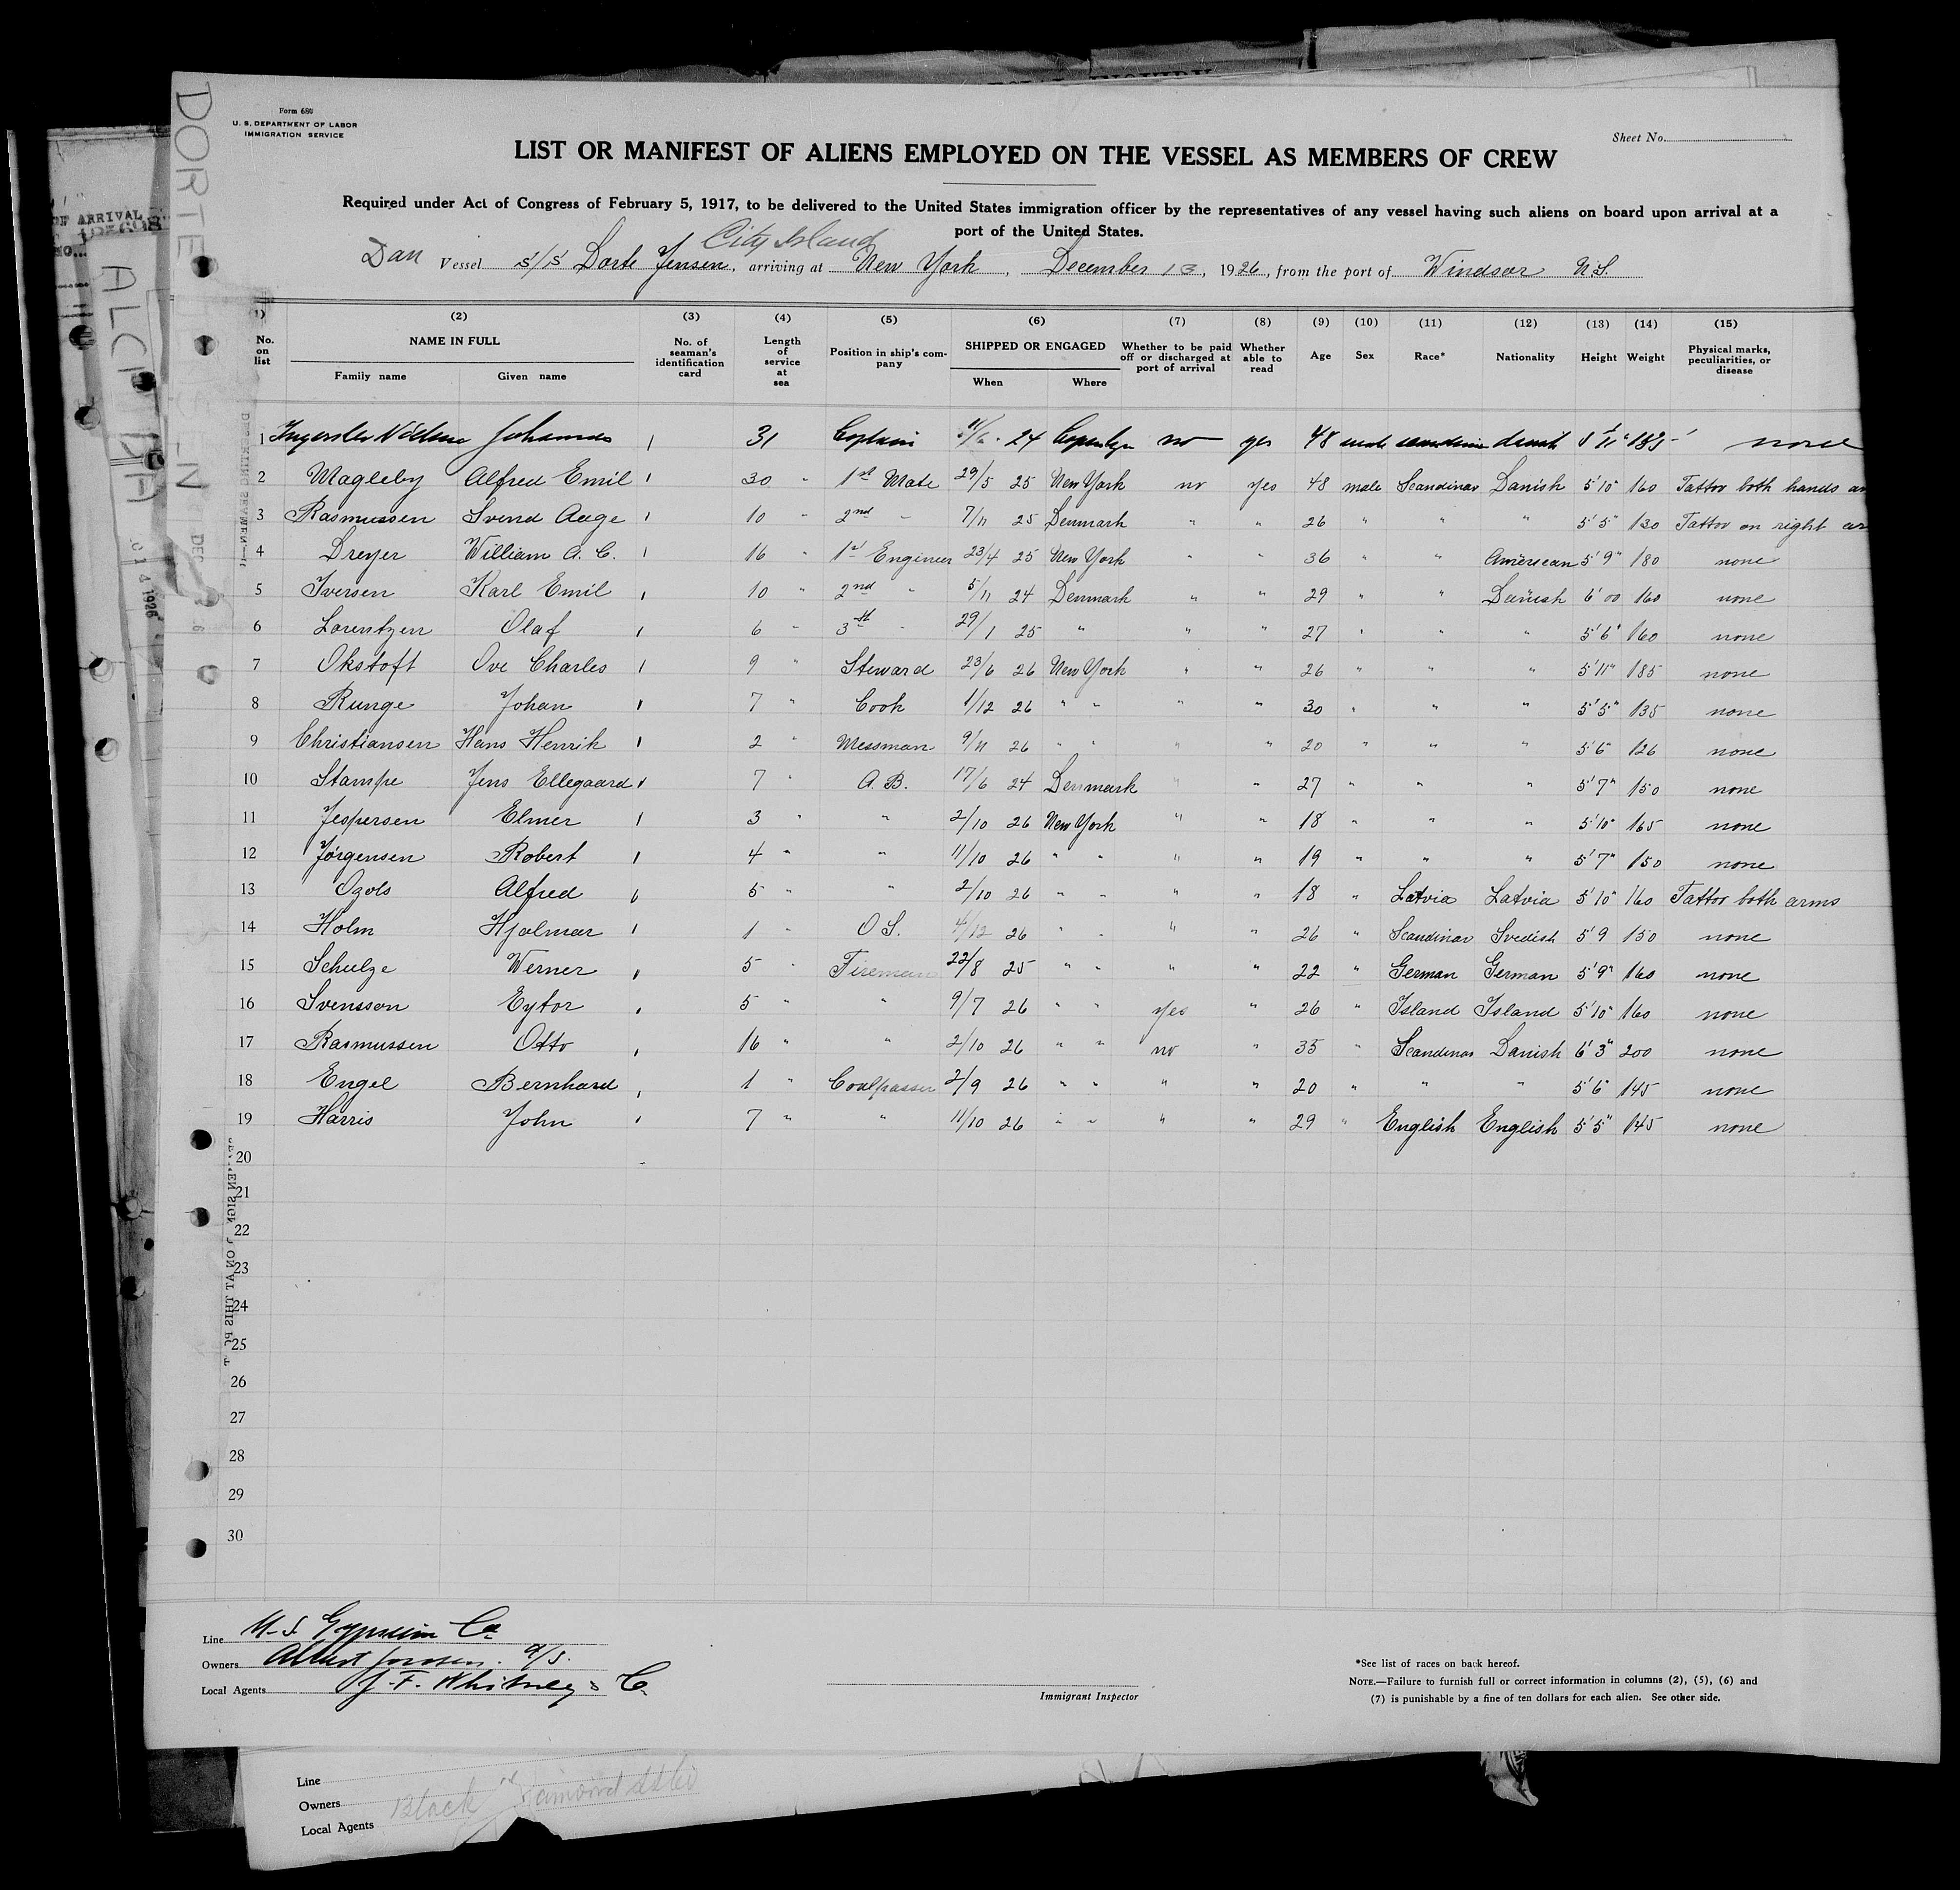 Form 680
U. S. DEPARTMENT OF LABOR
IMMIGRATION SERVICE
Sheet No.
LIST OR MANIFEST OF ALIENS EMPLOYED ON THE VESSEL AS MEMBERS OF CREW
Required under Act of Congress of February 5, 1917, to be delivered to the United States immigration officer by the representatives of any vessel having such aliens on board upon arrival at a
port of the United States.
City Island
Dan Vessel S/S Dorte Jensen, arriving at New York, December 13, 1926, from the port of Windsor N.S.
(2) (3) (4) (5) (6) (7) (8) (9) (10) (11) (12) (13) (14) (15)
No. on list NAME IN FULL Family name Given name No. of seaman's identification card Length of service at sea Position in ship's company SHIPPED OR ENGAGED When Where Whether to be paid off or discharged at port of arrival Whether able to read Age Sex Race* Nationality Height Weight Physical marks, peculiarities, or disease
1 Johannes 31 Captain 24 no yes 48 male danish 5'11" 185 none
2 Magleby Alfred Emil 30 " 1st Mate 29/5 25 New York no yes 48 male Scandinav Danish 5'10" 160 Tattoo both hands
3 Rasmussen Svend Aage 10 " 2nd " 7/11 25 Denmark " " 26 " " " 5'5" 130 Tattoo on right
4 Dreyer William A. C. 16 " 1st Engineer 23/4 25 New York " " 36 " " American 5'9" 180 none
5 Iversen Karl Emil 10 " 2nd " 5/11 24 Denmark " " 29 " " Danish 6'00 160 none
6 Lorentzen Olaf 6 " 3th " 29/1 25 " " " 27 " " " 5'6" 160 none
7 Okstoft Ove Charles 9 " Steward 23/6 26 New York " " 26 " " " 5'11" 185 none
8 Runge Johan 7 " Cook 1/12 26 " " " " 30 " " " 5'5" 135 none
9 Christiansen Hans Henrik 2 " Messman 9/11 26 " " " " 20 " " " 5'6" 126 none
10 Stampe Jens Ellegaard 7 " A.B. 17/6 24 Denmark " " 27 " " " 5'7" 150 none
11 Jespersen Elmer 3 " " 2/10 26 New York " " 18 " " " 5'10" 165 none
12 Jørgensen Robert 4 " " 11/10 26 " " " " 19 " " " 5'7" 150 none
13 Ozols Alfred 5 " " 2/10 26 " " " " 18 " Latvia Latvia 5'10" 160 Tattoo both arms
14 Holm Hjalmar 1 " O S. 4/12 26 " " " " 26 " Scandinav Svedish 5'9 150 none
15 Schulze Werner 5 " Fireman 22/8 25 " " " " 22 " German German 5'9" 160 none
16 Svensson Eytor 5 " " 9/7 26 " " yes " 26 " Island Island 5'10" 160 none
17 Rasmussen Otto 16 " " 2/10 26 " " no " 35 " Scandinav Danish 6'3" 200 none
18 Engel Bernhard 1 " Coalpasser 2/9 26 " " " " 20 " " " 5'6" 145 none
19 Harris John 7 " " 11/10 26 " " " " 29 " English English 5'5" 145 none
20
21
22
23
24
25
26
27
28
29
30
Line U.S. Gypsum Co
Owners Albert Jensen. A/S.
Local Agents J. F. Whitney & Co.
Immigrant Inspector
*See list of races on back hereof.
NOTE.—Failure to furnish full or correct information in columns (2), (5), (6) and
(7) is punishable by a fine of ten dollars for each alien. See other side.
Line
Owners
Local Agents Black Diamond